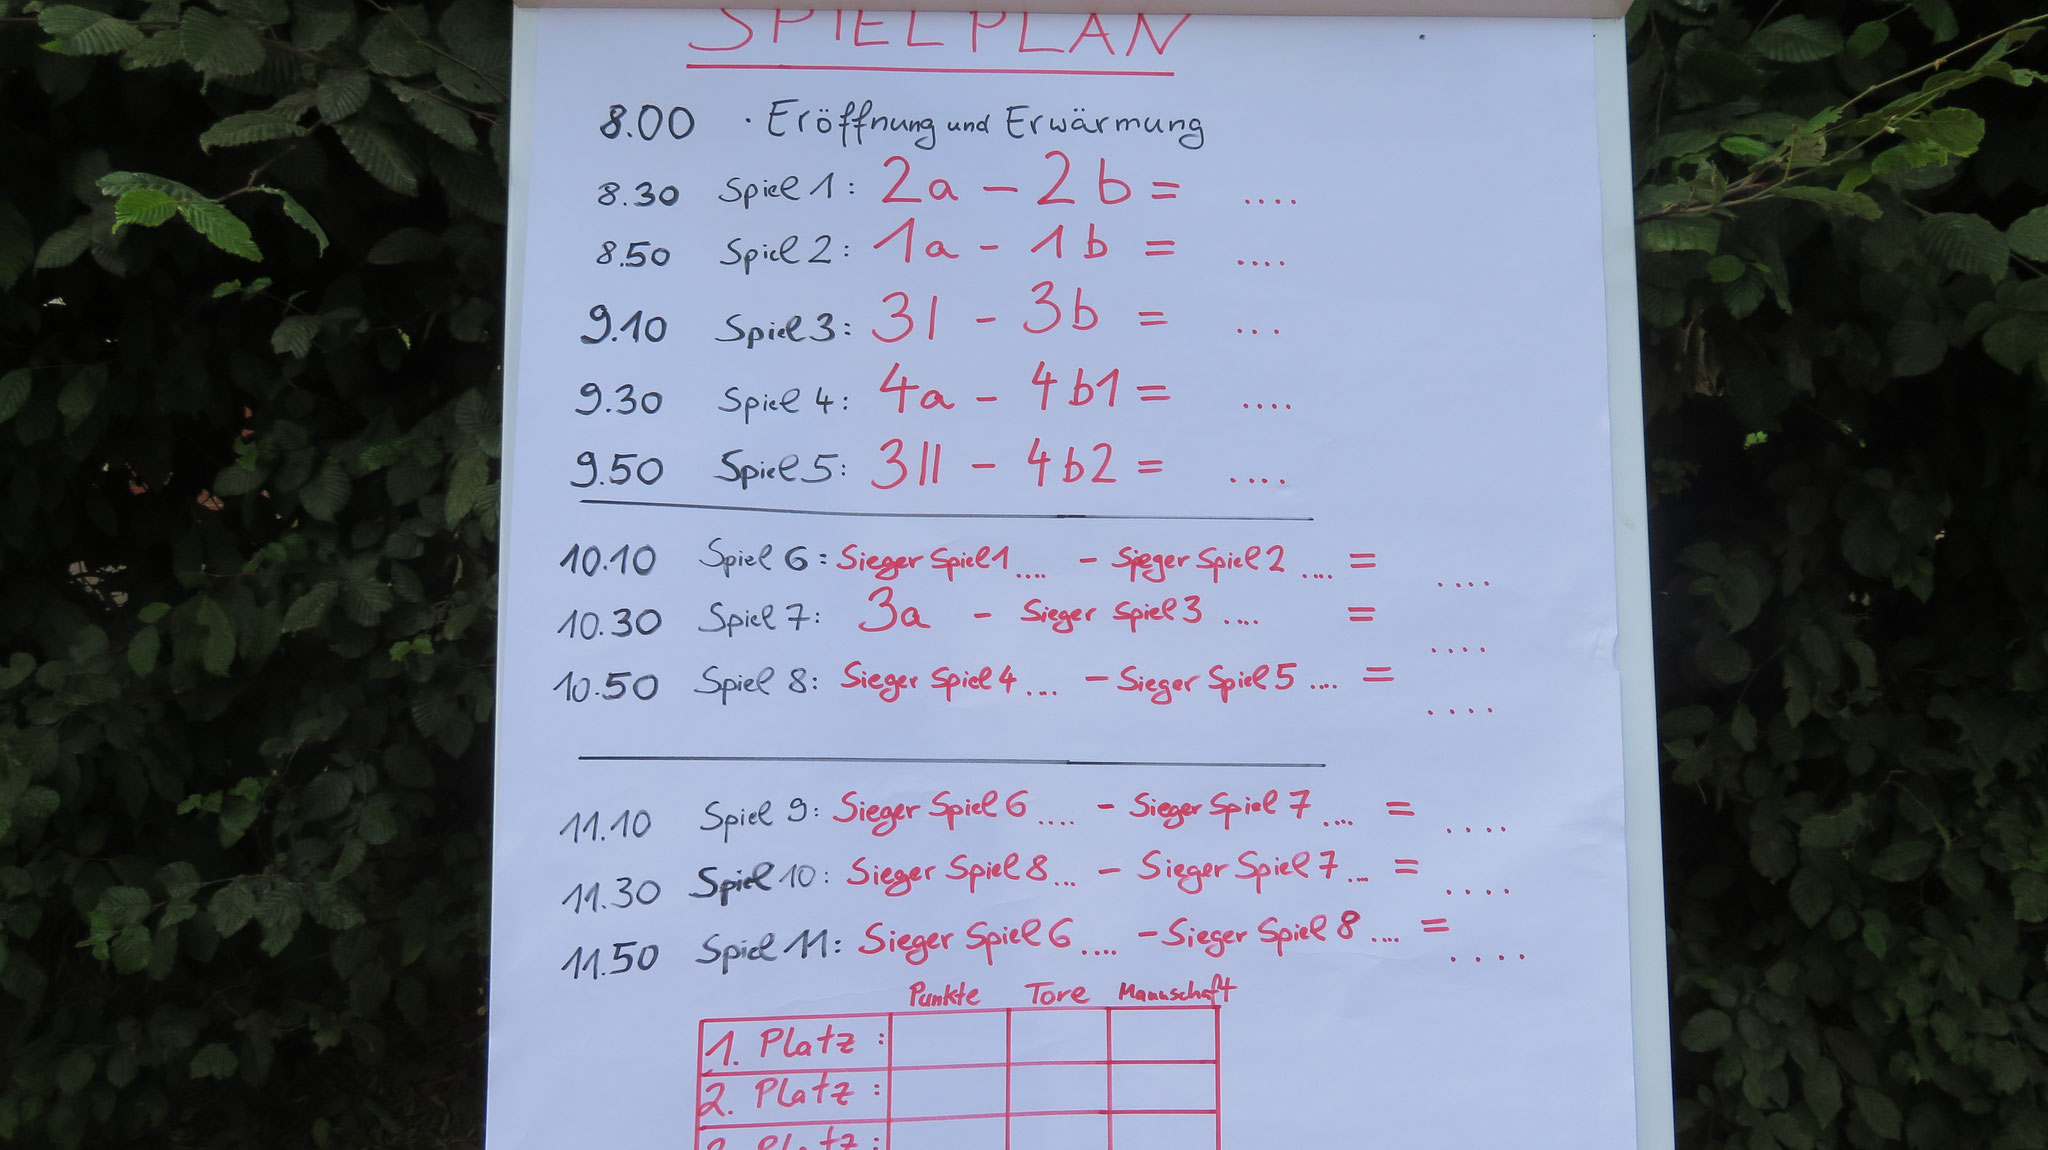 SPIELPLAN
8.00 · Eröffnung und Erwärmung
8.30 Spiel 1: 2a – 2b = ....
8.50 Spiel 2: 1a - 1b = ....
9.10 Spiel 3: 3I - 3b = ...
9.30 Spiel 4: 4a - 4b1 = ....
9.50 Spiel 5: 3II - 4b2 = ....
10.10 Spiel 6: Sieger Spiel 1 .... - Sieger Spiel 2 .... = ....
10.30 Spiel 7: 3a - Sieger Spiel 3 .... = ....
10.50 Spiel 8: Sieger Spiel 4 .... - Sieger Spiel 5 .... = ....
11.10 Spiel 9: Sieger Spiel 6 .... - Sieger Spiel 7 .... = ....
11.30 Spiel 10: Sieger Spiel 8 ... - Sieger Spiel 7 ... = ....
11.50 Spiel 11: Sieger Spiel 6 .... - Sieger Spiel 8 .... = ....
Punkte Tore Mannschaft
1. Platz :
2. Platz :
3. Platz :